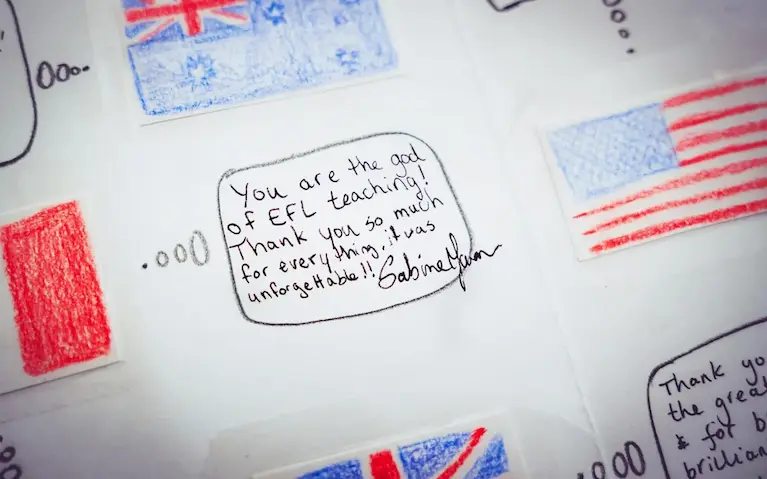 You are the god
of EFL teaching!
Thank you so much
for everything, it was
unforgettable!! Sabine
Thank yo
the great
& for b
brillian